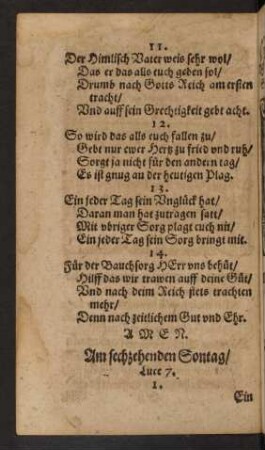 11.
Der Himlisch Vater weis sehr wol/
Das er das alls euch geben sol/
Drumb nach Gotts Reich am ersten
tracht/
Vnd auff sein Grechtigkeit gebt acht.
12.
So wird das alls euch fallen zu/
Gebt nur ewer Hertz zu fried vnd ruh/
Sorgt ja nicht für den andern tag/
Es ist gnug an der heutigen Plag.
13.
Ein jeder Tag sein Vnglück hat/
Daran man hat zutragen satt/
Mit vbriger Sorg plagt euch nit/
Ein jeder Tag sein Sorg bringt mit.
14.
Für der Bauchsorg HErr vns behüt/
Hilff das wir trawen auff deine Güt/
Vnd nach deim Reich stets trachten
mehr/
Denn nach zeitlichem Gut vnd Ehr.
A M E N.
Am sechzehenden Sontag/
Luce 7.
1.
Ein